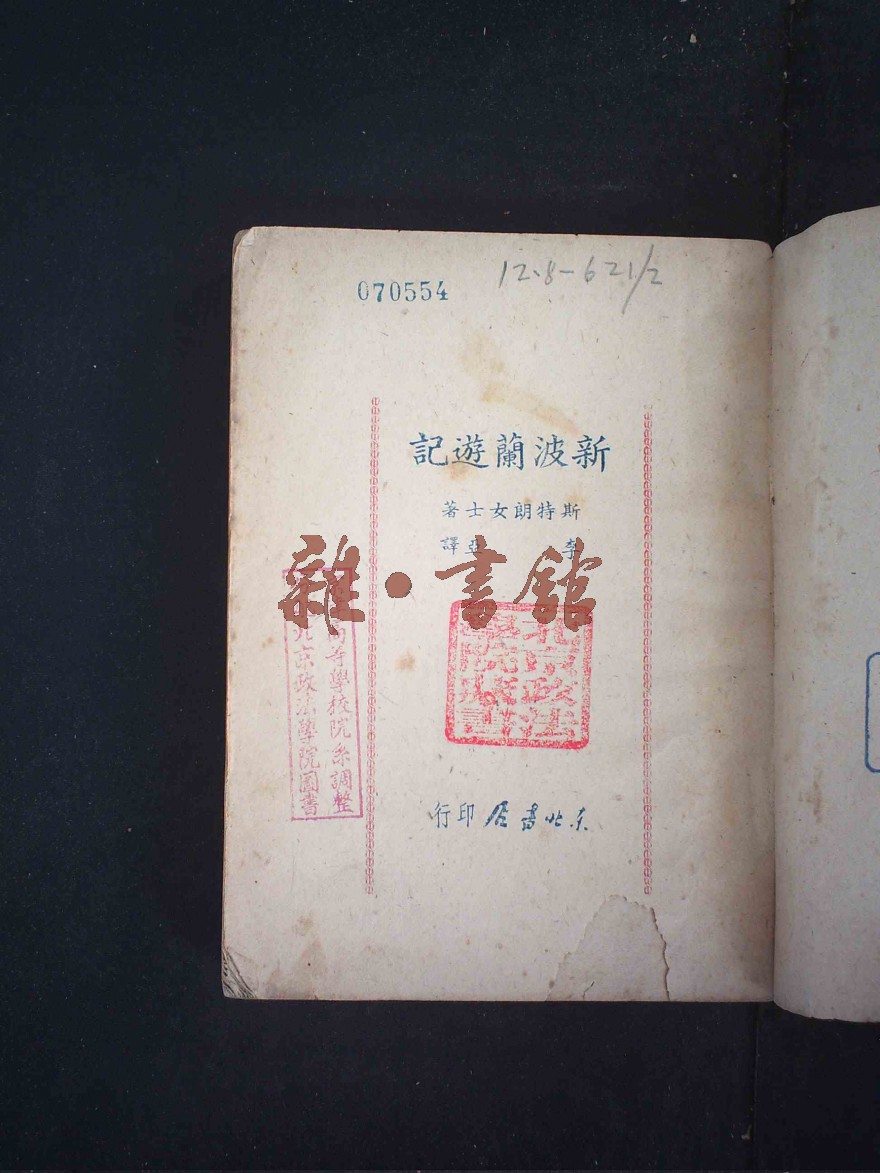 070554
12.8-621/2
新波蘭遊記
斯特朗女士著
李亞譯
雜·書館
北京政法
學院圖書
高等學校院系調整
北京政法學院圖書
东北書店印行